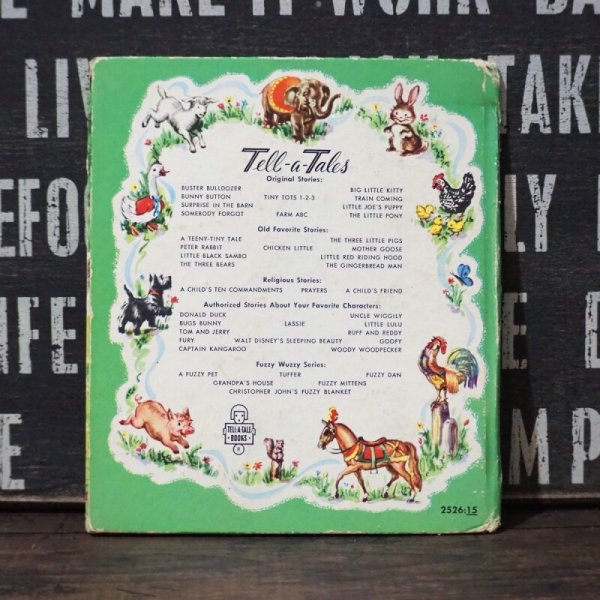 E MAKE IT WORK DA
LI
TAKE
EFO
LY
IFE
E
MP
Tell-a-Tales
Original Stories:
BUSTER BULLDOZER BIG LITTLE KITTY
BUNNY BUTTON TINY TOTS 1-2-3 TRAIN COMING
SURPRISE IN THE BARN LITTLE JOE'S PUPPY
SOMEBODY FORGOT FARM ABC THE LITTLE PONY
Old Favorite Stories:
A TEENY-TINY TALE THE THREE LITTLE PIGS
PETER RABBIT CHICKEN LITTLE MOTHER GOOSE
LITTLE BLACK SAMBO LITTLE RED RIDING HOOD
THE THREE BEARS THE GINGERBREAD MAN
Religious Stories:
A CHILD'S TEN COMMANDMENTS PRAYERS A CHILD'S FRIEND
Authorized Stories About Your Favorite Characters:
DONALD DUCK UNCLE WIGGILY
BUGS BUNNY LASSIE LITTLE LULU
TOM AND JERRY RUFF AND REDDY
FURY WALT DISNEY'S SLEEPING BEAUTY GOOFY
CAPTAIN KANGAROO WOODY WOODPECKER
Fuzzy Wuzzy Series:
A FUZZY PET TUFFER FUZZY DAN
GRANDPA'S HOUSE FUZZY MITTENS
CHRISTOPHER JOHN'S FUZZY BLANKET
TELL-A-TALE
BOOKS
2526:15